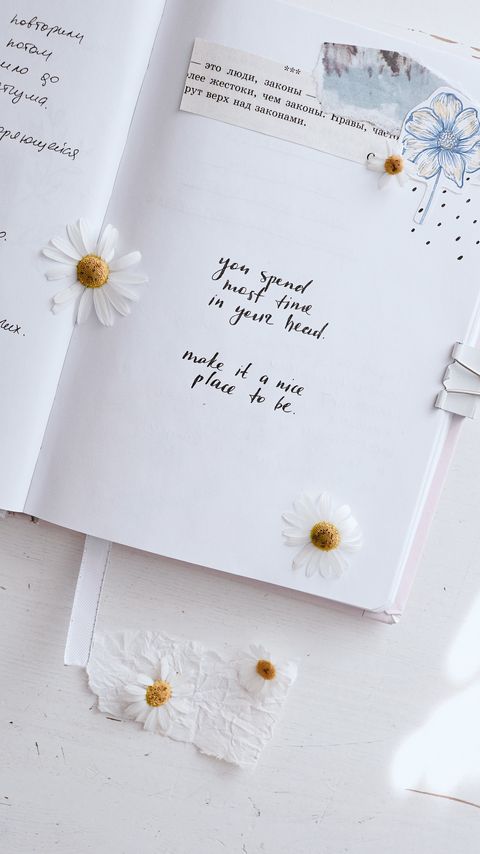 повторили
потом
ило до
***
— это люди, законы —
лее жестоки, чем законы. Нравы, часто
рут верх над законами.
you spend
most time
in your head.
make it a nice
place to be.